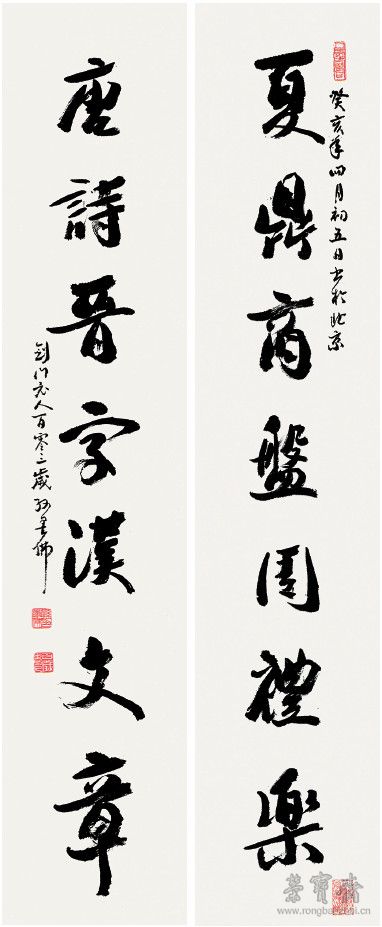 癸亥年四月初五日书於北京
夏鼎商盤周禮樂
唐詩晉字漢文章
剑门老人百零二歲孙墨佛
榮寶齋
www.rongbaozhai.cn